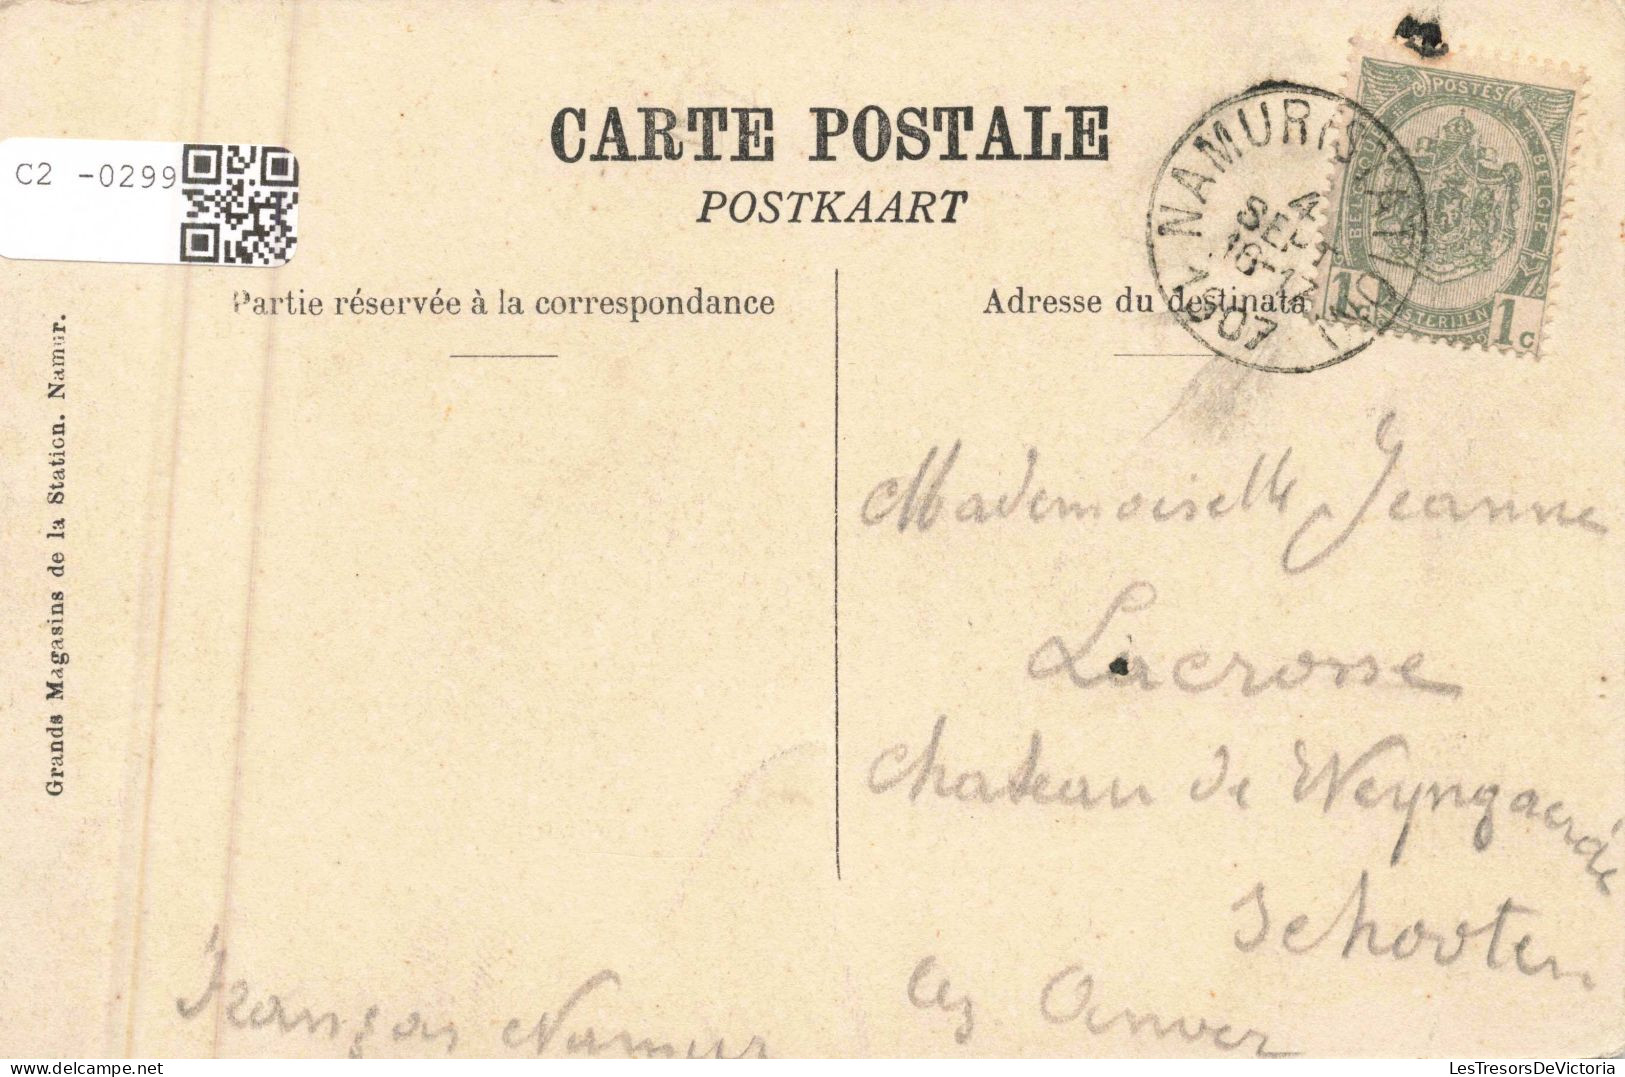 C2 -0299
CARTE POSTALE
POSTKAART
NAMUR (STATION)
4
SEPT
16-17
1907
POSTES
BELGIQUE BELGIE
1c 1c
Partie réservée à la correspondance
Adresse du destinata
Grands Magasins de la Station. Namur.
Mademoiselle Jeanne
Lacrosse
Chateau de Weyngaerde
Schooten
lez Anver
François Namur
LesTresorsDeVictoria